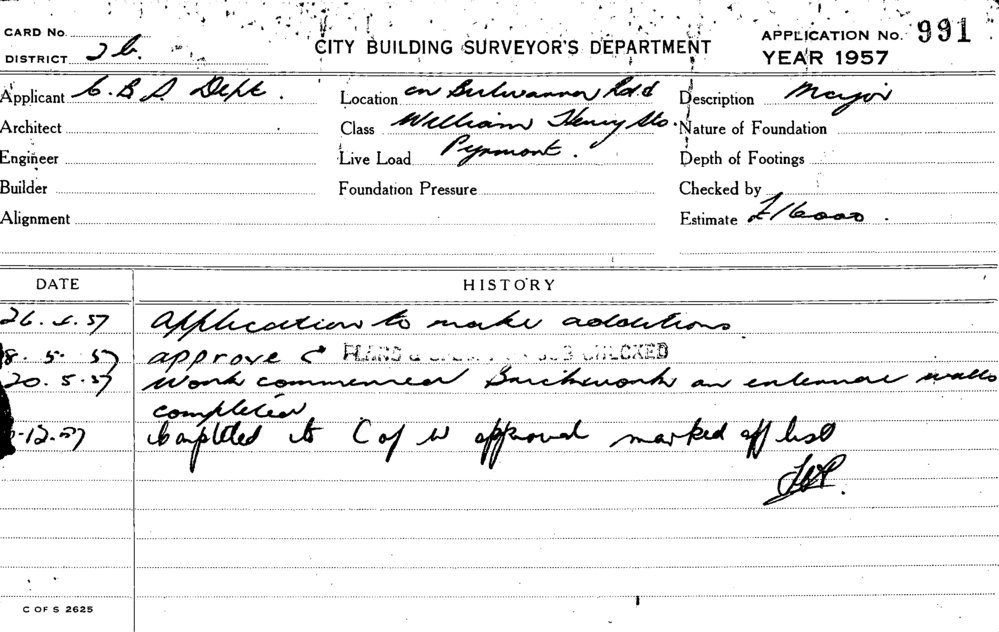 CARD No.
DISTRICT 2b.
CITY BUILDING SURVEYOR'S DEPARTMENT
APPLICATION No. 991
YEAR 1957
Applicant C. B. S. Dept.
Location cn Bulwarra Rd &
Description Major
Architect
Class William Henry Sts.
Nature of Foundation
Engineer
Live Load Pyrmont.
Depth of Footings
Builder
Foundation Pressure
Checked by
Alignment
Estimate £16000.
DATE HISTORY
26. 4. 57 Application to make additions
8. 5. 57 approve PLANS & CHECKED
20. 5. 57 Work commenced Brickwork on external walls
completed
-12.57 Completed to C of W approval marked off list
C OF S 2625